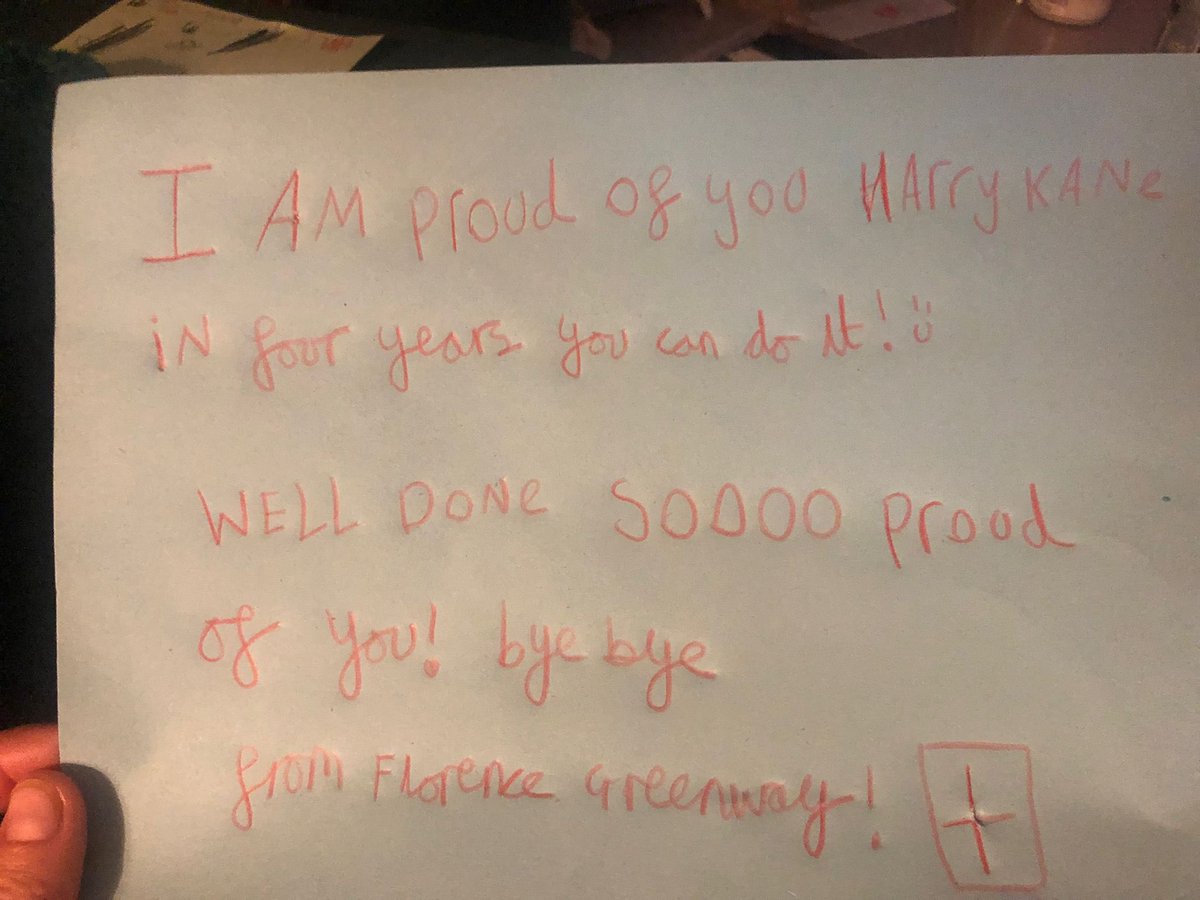 I AM proud of you HArry KANe
iN four years you can do it! :)
WELL DONe SOOOO proud
of you! bye bye
from Florence Greenway!